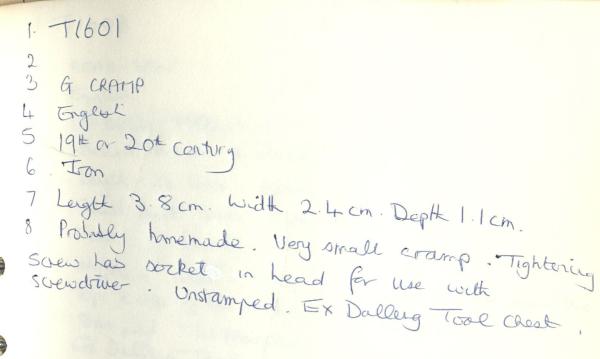 1. T1601
2
3 G CRAMP
4 English
5 19th or 20th century
6. Iron
7 Length 3.8cm. Width 2.4cm. Depth 1.1cm.
8 Probably homemade. Very small cramp. Tightening
screw has socket in head for use with
screwdriver. Unstamped. Ex Tool Chest.